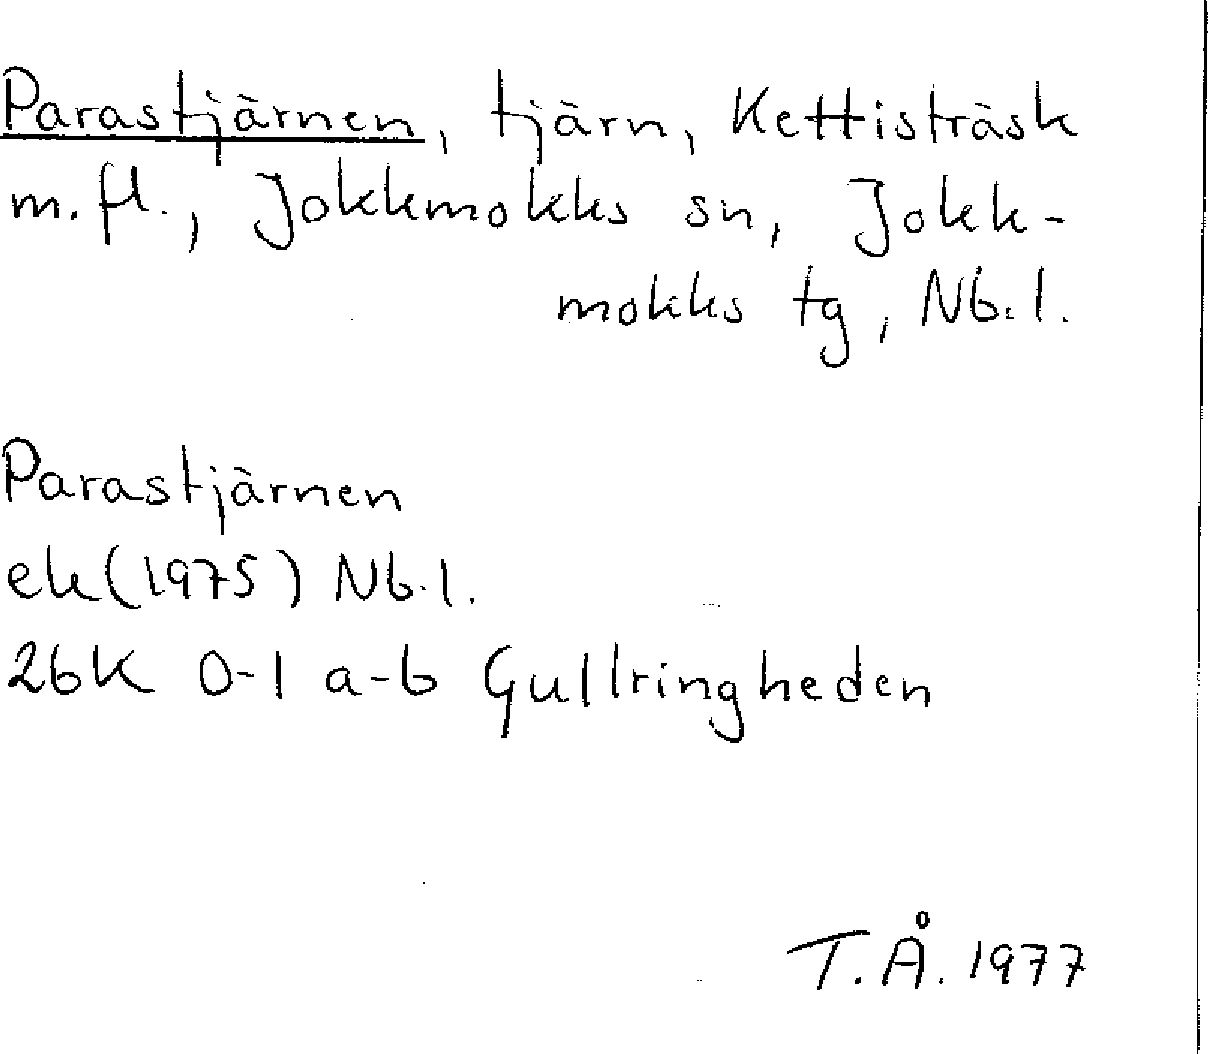 Parastjärnen, tjärn, Kettisträsk
m.fl., Jokkmokks sn, Jokk-
mokks tg, Nb.l.
Parastjärnen
ek(1975) Nb.l.
26K 0-1 a-b Gullringheden
T.Å. 1977